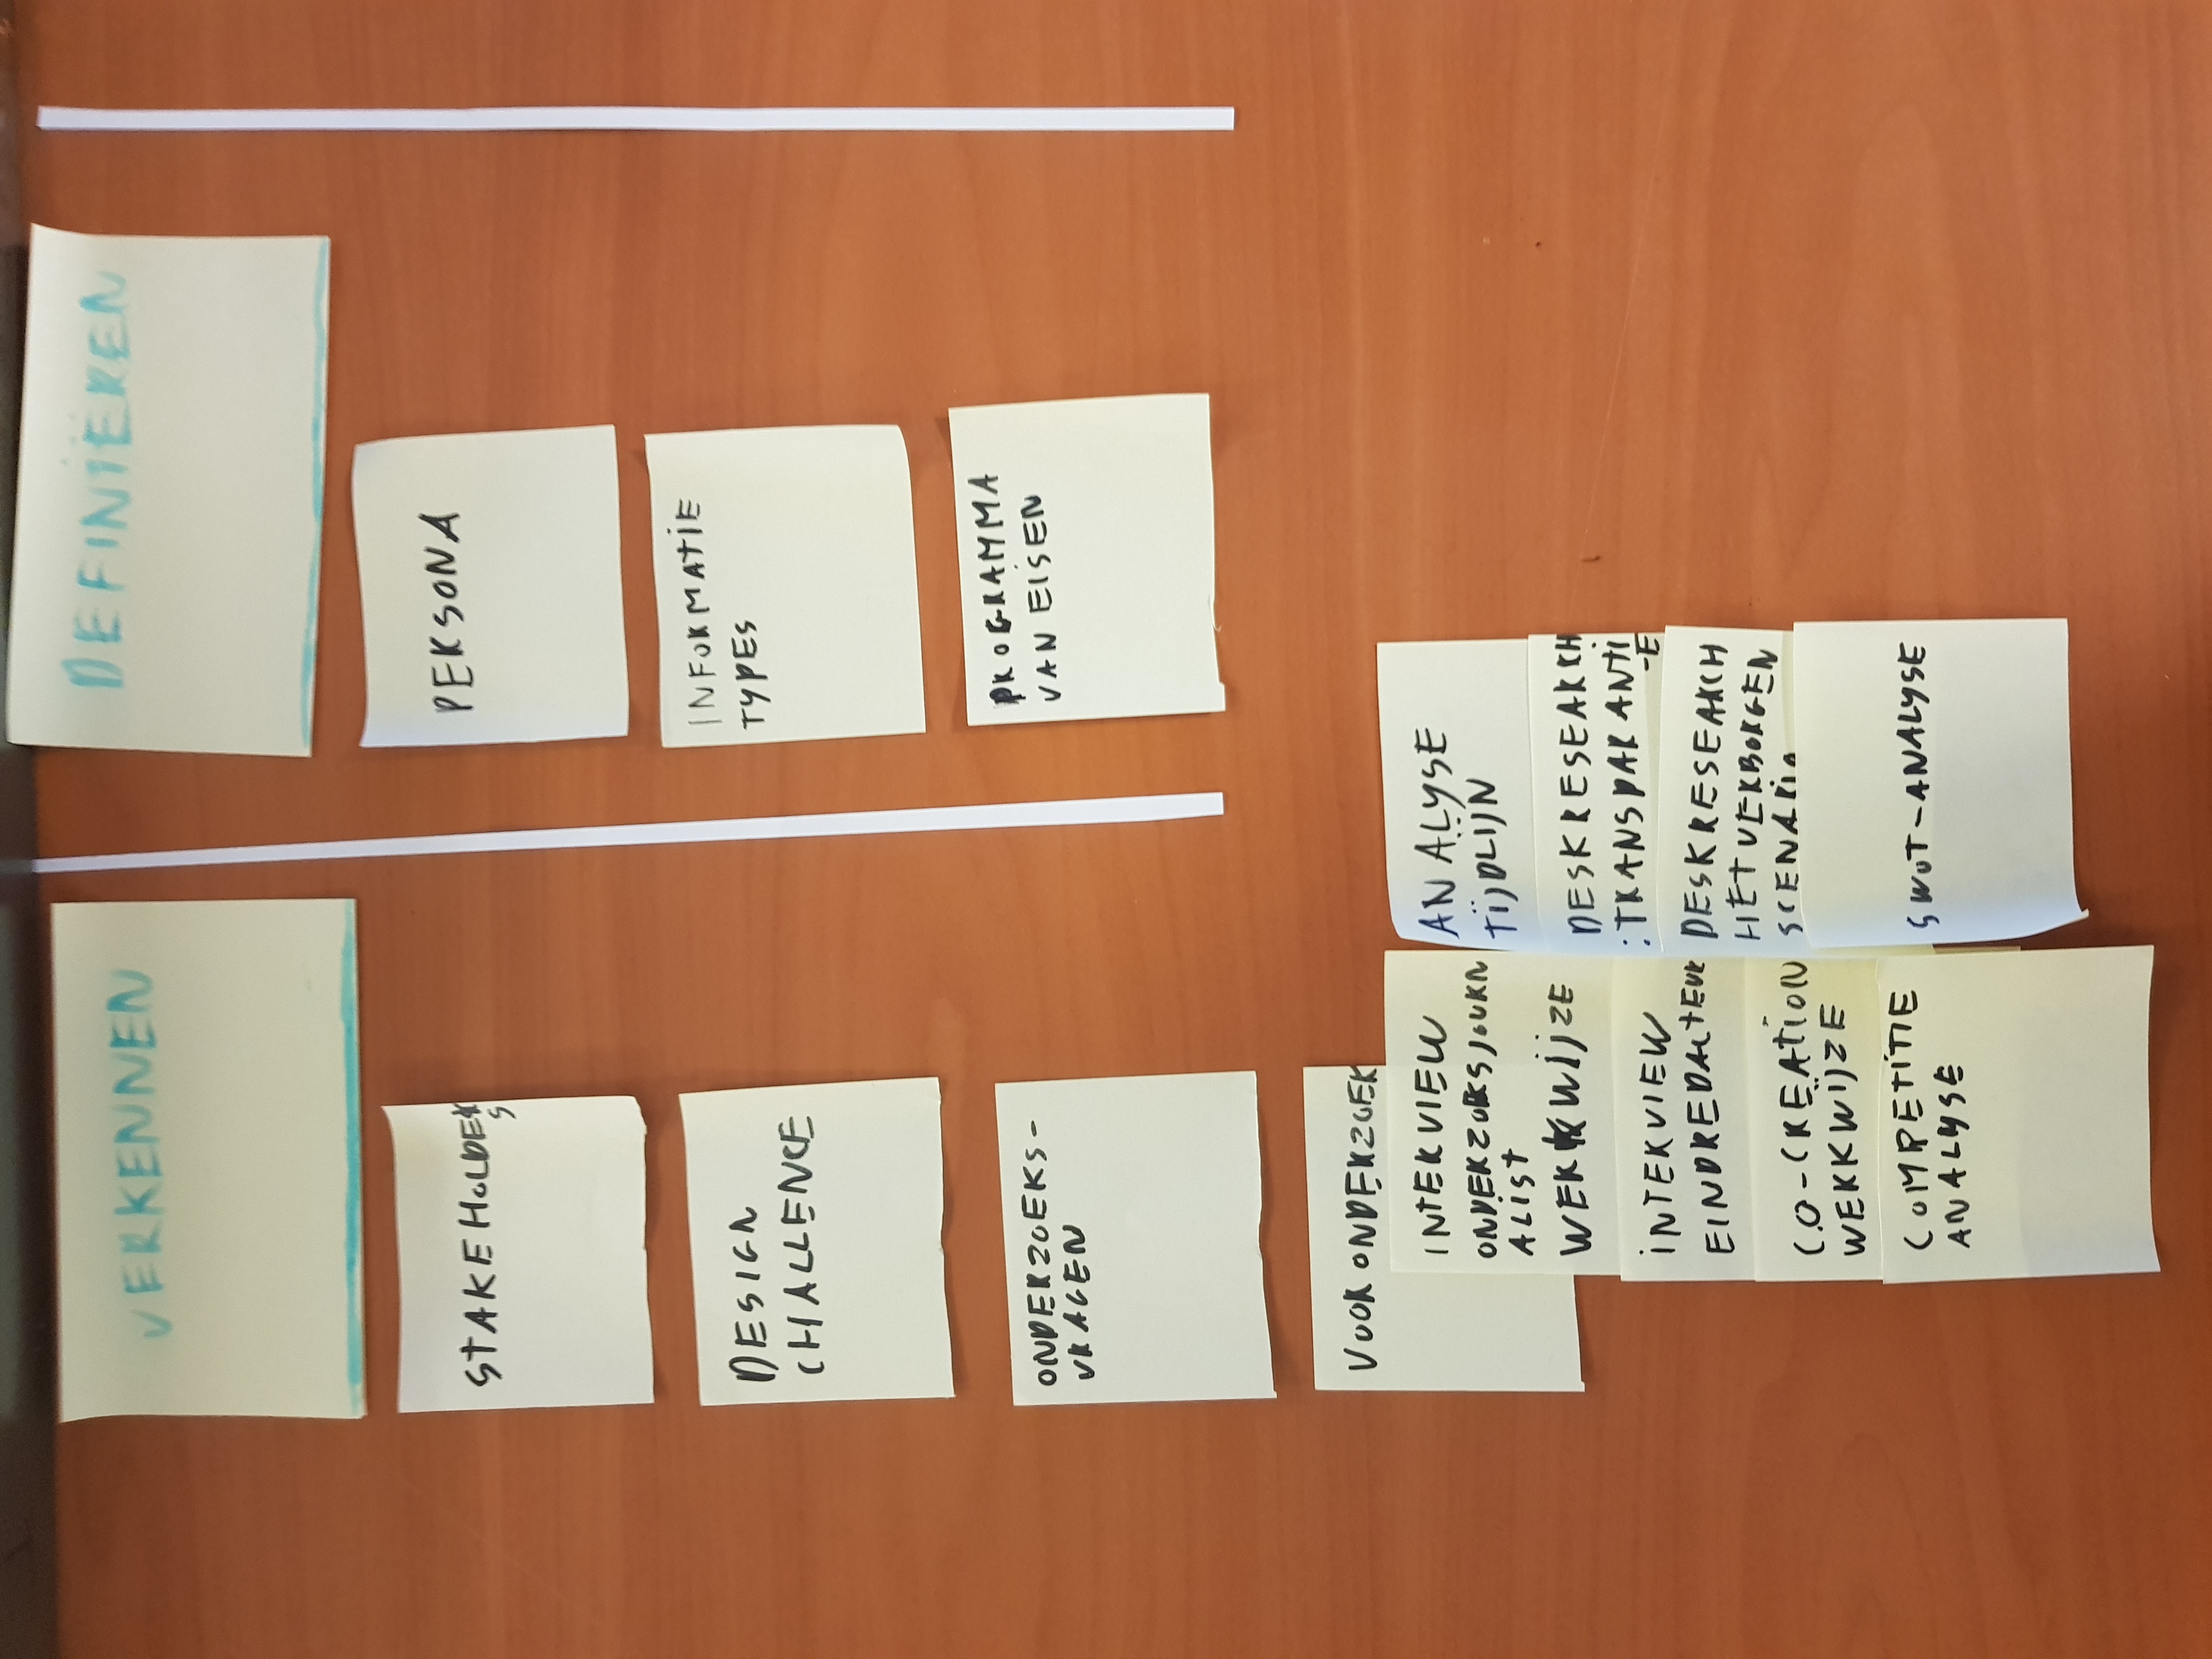 VERKENNEN
STAKEHOLDER
S
DESIGN
CHALLENGE
ONDERZOEKS-
VRAGEN
VOORONDERZOEK
INTERVIEW
ONDERZOEKSJOURN
ALIST
WERKWIJZE
INTERVIEW
EINDREDACTEUR
CO-CREATION
WERKWIJZE
COMPETITIE
ANALYSE
ANALYSE
TIJDLIJN
DESKRESEARCH
:TRANSPARANTI
-E
DESKRESEARCH
HET VERBORGEN
SCENARIO
SWOT-ANALYSE
DEFINIËREN
PERSONA
INFORMATIE
TYPES
PROGRAMMA
VAN EISEN